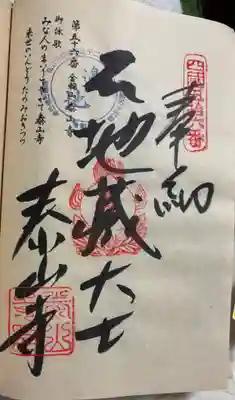 四國第五十六番
奉納
地蔵大士
泰山寺
第五十六番 金輪山 泰山寺
御詠歌
みな人のまいりてやがて泰山寺
来世のいんどうたのみおきつつ